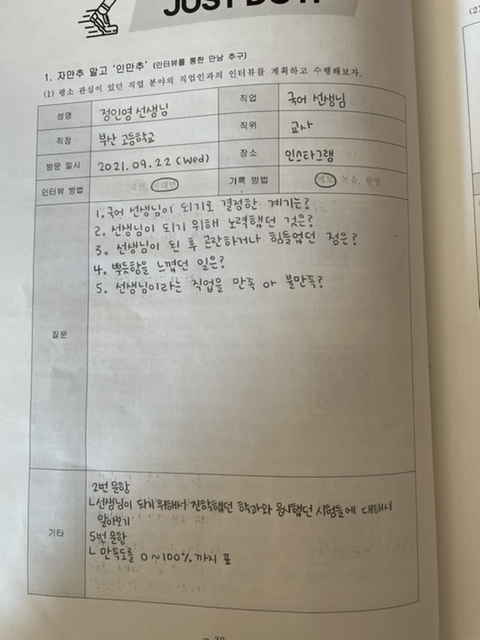 JUST DO IT
1. 자만추 말고 '인만추' (인터뷰를 통한 만남 추구)
(1) 평소 관심이 있던 직업 분야의 직업인과의 인터뷰를 계획하고 수행해보자.
성명 정인영 선생님 직업 국어 선생님
직장 부산 고등학교 직위 교사
방문 일시 2021.09.22 (Wed) 장소 인스타그램
인터뷰 방법 대면, 비대면 기록 방법 메모, 녹음, 촬영
질문
1. 국어 선생님이 되기로 결정한 계기는?
2. 선생님이 되기 위해 노력했던 것은?
3. 선생님이 된 후 곤란하거나 힘들었던 점은?
4. 뿌듯함을 느꼈던 일은?
5. 선생님이라는 직업을 만족 or 불만족?
기타
2번 문항
ㄴ선생님이 되기 위해서 진학했던 학과와 응시했던 시험들에 대해서
알아보기
5번 문항
ㄴ 만족도를 0~100%까지 표